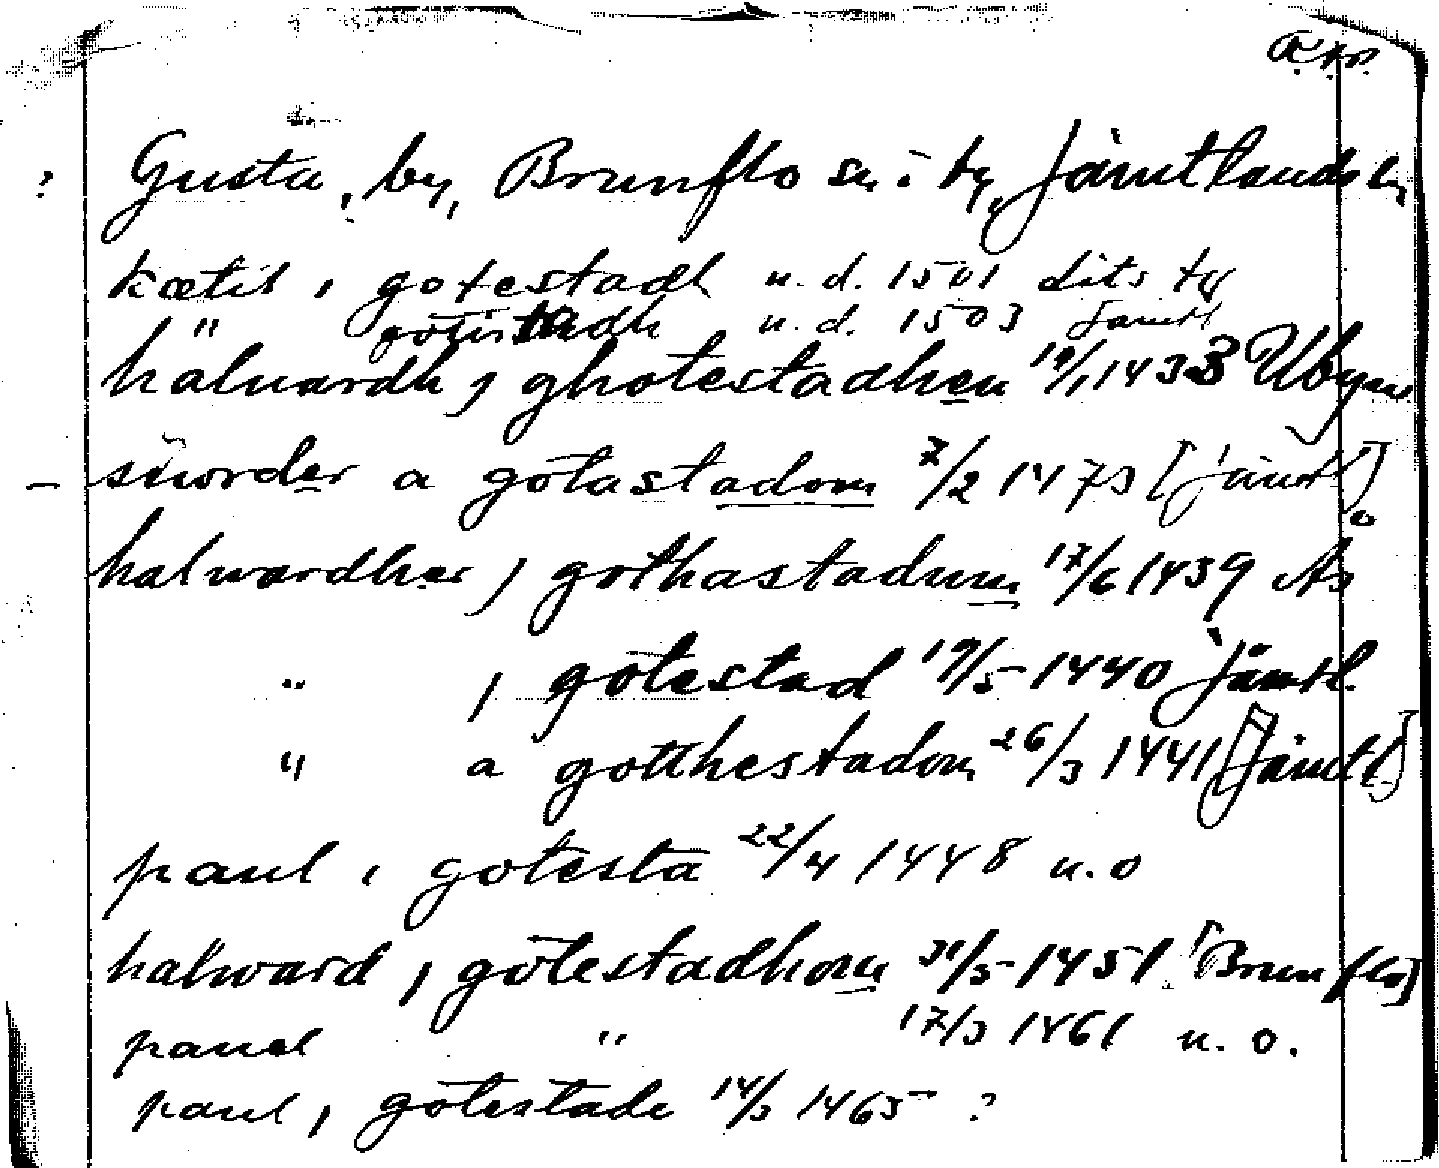 R.A.P.
? Gusta, by, Brunflo sn i by, Jämtlands l.
kætil i gotestadh u.d. 1501 dits ty
" götistadh u.d. 1503 Jämtl
halvardh j ghotestadhen 19/1 1433 Ubyn
- siworder a götastadom 7/2 1473 [Jämtl]
halwardher j gothastadum 17/6 1439 Ås
" j götestad 19/5 1440 Jämtl.
" a gotthestadom 26/3 1441 [Jämtl]
paul i götesta 22/4 1448 u.o
halward j götestadhom 31/5 1451 [Brunflo]
pauel " 17/3 1461 u.o.
paul j götestade 14/3 1465 ?